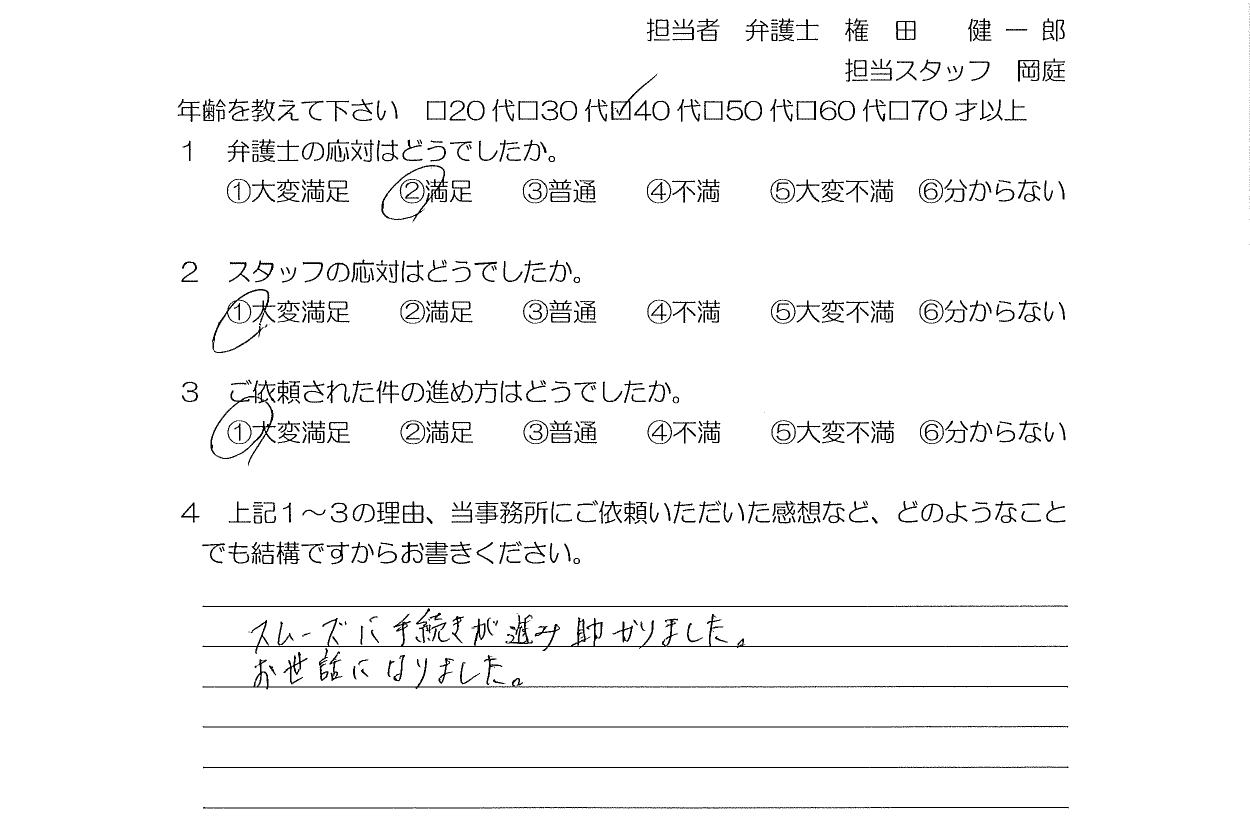 担当者　弁護士　権　田　　健　一　郎
担当スタッフ　岡庭
年齢を教えて下さい　□20代□30代☑40代□50代□60代□70才以上
１　弁護士の応対はどうでしたか。
①大変満足　②満足　③普通　④不満　⑤大変不満　⑥分からない
２　スタッフの応対はどうでしたか。
①大変満足　②満足　③普通　④不満　⑤大変不満　⑥分からない
３　ご依頼された件の進め方はどうでしたか。
①大変満足　②満足　③普通　④不満　⑤大変不満　⑥分からない
４　上記１～３の理由、当事務所にご依頼いただいた感想など、どのようなこと
でも結構ですからお書きください。
スムーズに手続きが進み助かりました。
お世話になりました。